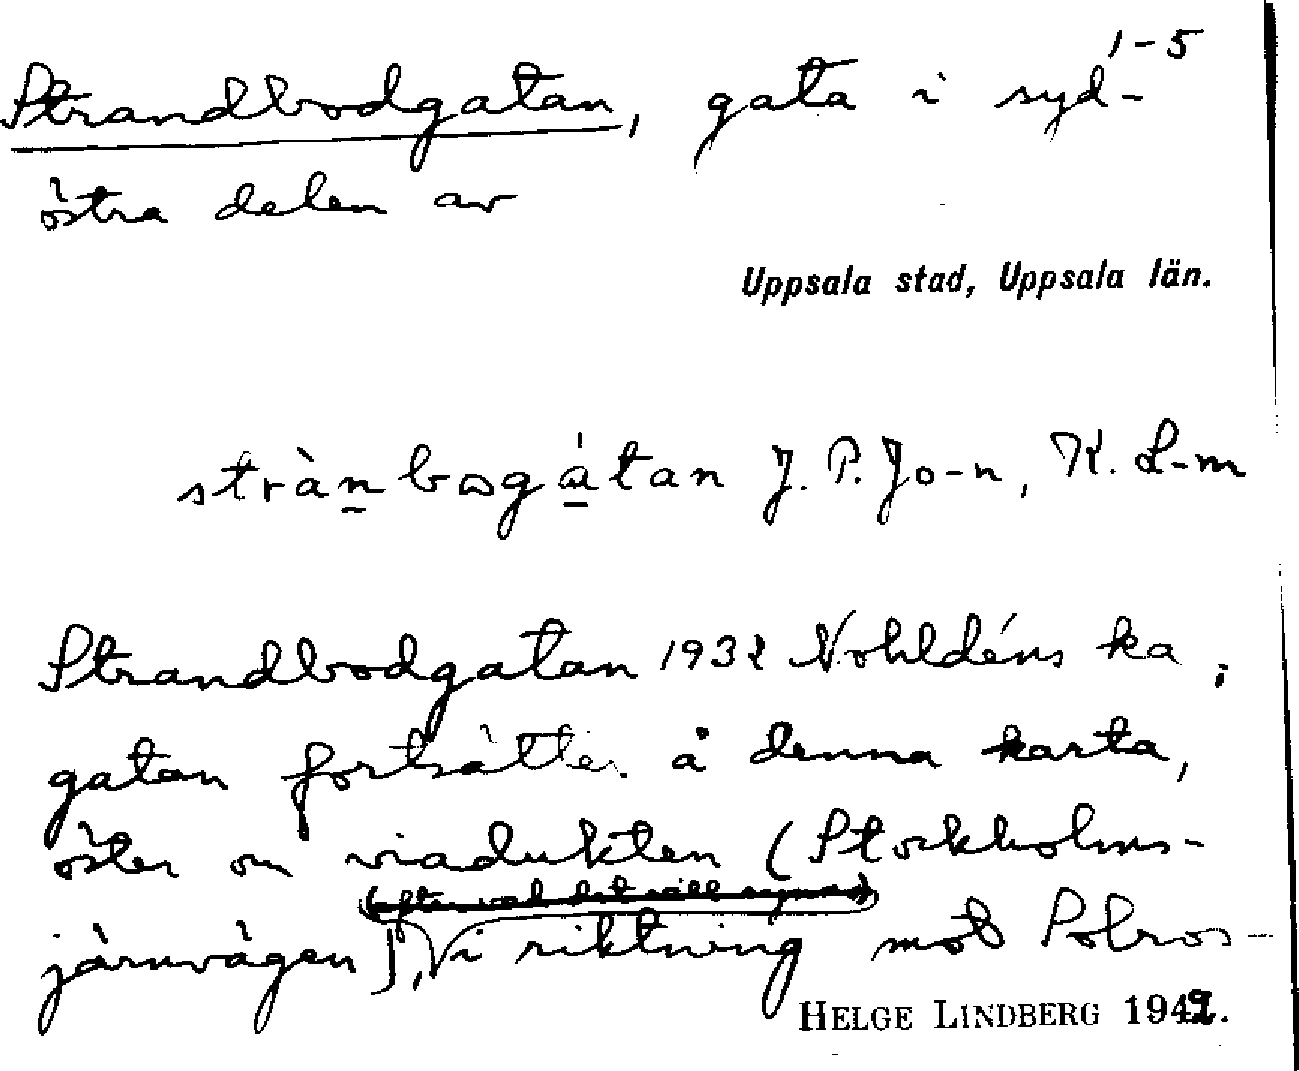 1-5
Strandbodgatan, gata i syd-
östra delen av
Uppsala stad, Uppsala län.
stràn̰bogá̠tan J. P. Jo-n, K. L-m
Strandbodgatan 1932 Nohldéns ka;
gatan fortsätter å denna karta,
öster om viadukten (Stockholms-
järnvägen), i riktning mot Polros-
HELGE LINDBERG 1942.